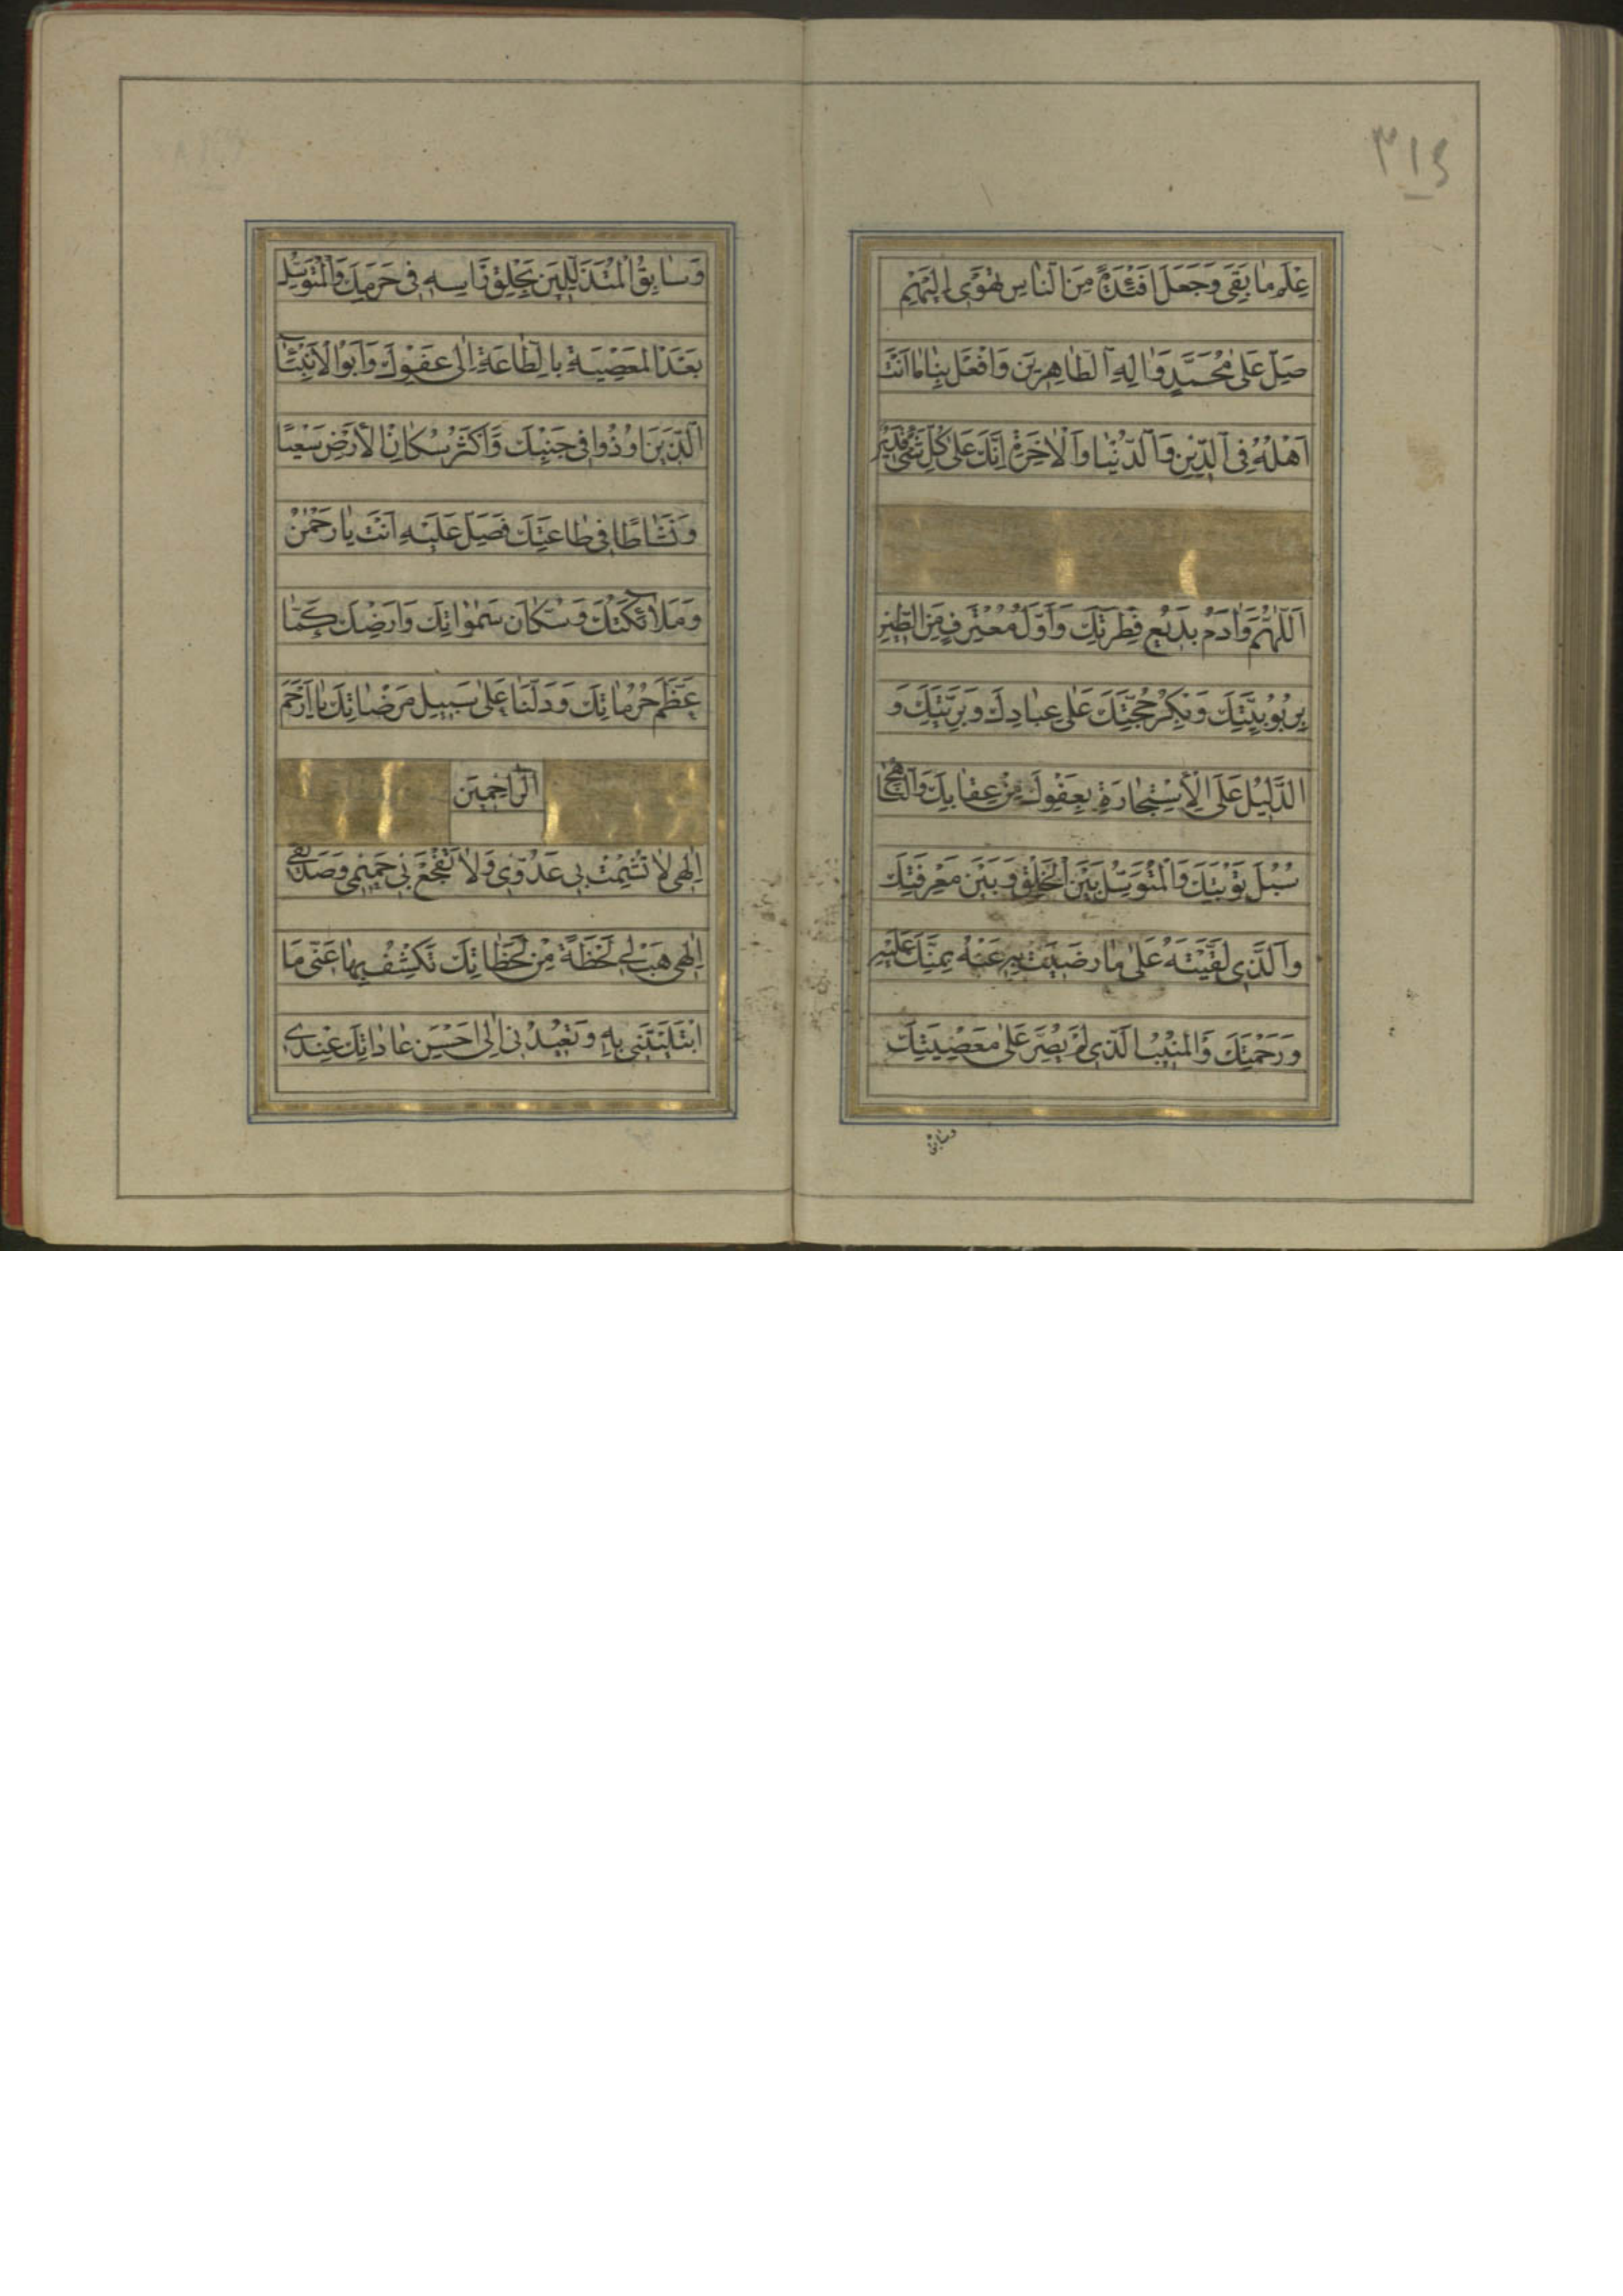 ٣١٤
عِلْمِ مَا بَقِيَ وَجَعَلَ اَفْئِدَةً مِنَ النَّاسِ تَهْوِي اِلَيْهِمْ
صَلِّ عَلٰى مُحَمَّدٍ وَاٰلِهِ الطَّاهِرِيْنَ وَافْعَلْ بِنَا مَا اَنْتَ
اَهْلُهُ فِي الدِّيْنِ وَالدُّنْيَا وَالْاٰخِرَةِ اِنَّكَ عَلٰى كُلِّ شَيْءٍ قَدِيْرٌ
اَللّٰهُمَّ وَاٰدَمُ بَدِيْعُ فِطْرَتِكَ وَاَوَّلُ مُعْتَرِفٍ مِنَ الطِّيْنِ
بِرُبُوْبِيَّتِكَ وَبِكْرُ حُجَّتِكَ عَلٰى عِبَادِكَ وَبَرِيَّتِكَ وَ
الدَّلِيْلُ عَلَى الْاِسْتِجَارَةِ بِعَفْوِكَ مِنْ عِقَابِكَ وَالنَّاهِجُ
سُبُلَ تَوْبَتِكَ وَالْمُتَوَسِّلُ بَيْنَ الْخَلْقِ وَبَيْنَ مَعْرِفَتِكَ
وَالَّذِي لَقَّيْتَهُ عَلٰى مَا رَضِيْتَ بِهِ عَنْهُ بِمَنِّكَ عَلَيْهِ
وَرَحْمَتِكَ وَالْمُنِيْبُ الَّذِي لَمْ يُصِرَّ عَلٰى مَعْصِيَتِكَ
وسابق
وَسَابِقُ الْمُتَذَلِّلِيْنَ بِحَلْقِ رَاْسِهِ فِي حَرَمِكَ وَالْمُتَوَسِّلُ
بَعْدَ الْمَعْصِيَةِ بِالطَّاعَةِ اِلٰى عَفْوِكَ وَاَبُو الْاَنْبِيَاءِ
الَّذِيْنَ اُوْذُوا فِي جَنْبِكَ وَاَكْثَرُ سُكَّانِ الْاَرْضِ سَعْيًا
وَنَشَاطًا فِي طَاعَتِكَ فَصَلِّ عَلَيْهِ اَنْتَ يَا رَحْمٰنُ
وَمَلَائِكَتُكَ وَسُكَّانُ سَمٰوَاتِكَ وَاَرْضِكَ كَمَا
عَظَّمَ حُرُمَاتِكَ وَدَلَّنَا عَلٰى سَبِيْلِ مَرْضَاتِكَ يَا اَرْحَمَ
الرَّاحِمِيْنَ
اِلٰهِي لَا تُشْمِتْ بِي عَدُوِّي وَلَا تَفْجَعْ بِي حَمِيْمِي وَصَدِيْقِي
اِلٰهِي هَبْ لِي لَحْظَةً مِنْ لَحَظَاتِكَ تَكْشِفُ بِهَا عَنِّي مَا
ابْتَلَيْتَنِي بِهِ وَتُعِيْدُنِي اِلٰى اَحْسَنِ عَادَاتِكَ عِنْدِي